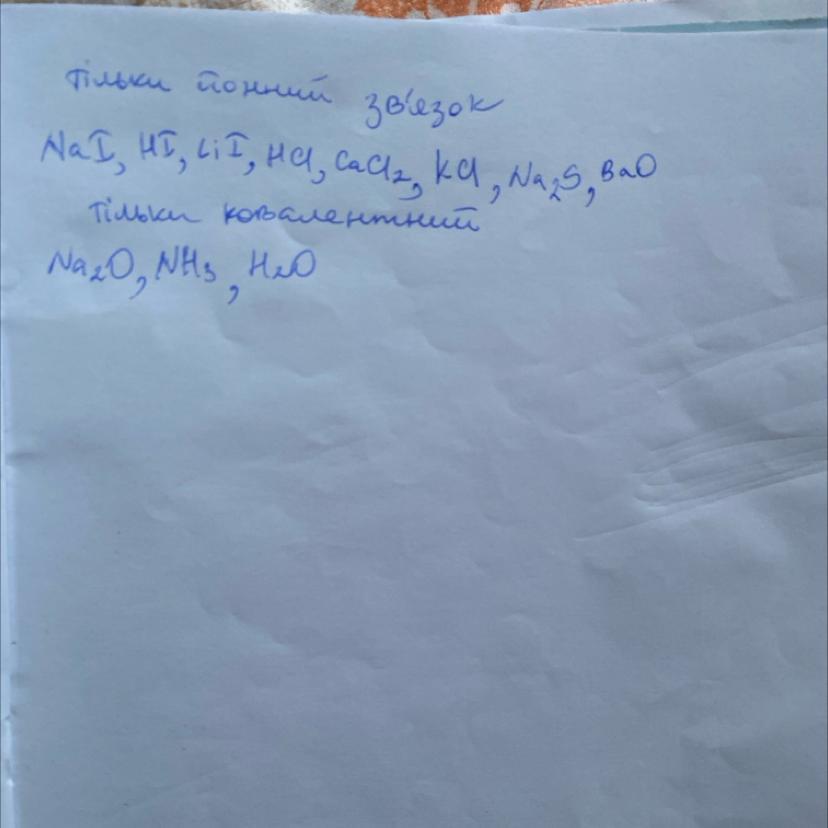 тільки йонний зв'язок
NaI, HI, LiI, HCl, CaCl₂, KCl, Na₂S, BaO
тільки ковалентний
Na₂O, NH₃, H₂O